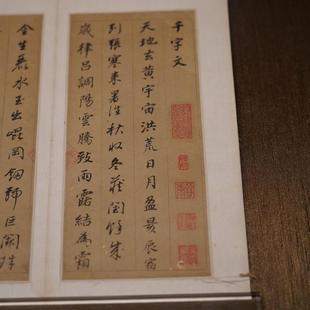 千字文
天地玄黃宇宙洪荒日月盈昃辰宿
列張寒来暑往秋收冬藏閏餘成
歲律呂調陽雲騰致雨露結為霜
金生麗水玉出崐岡劒號巨闕珠